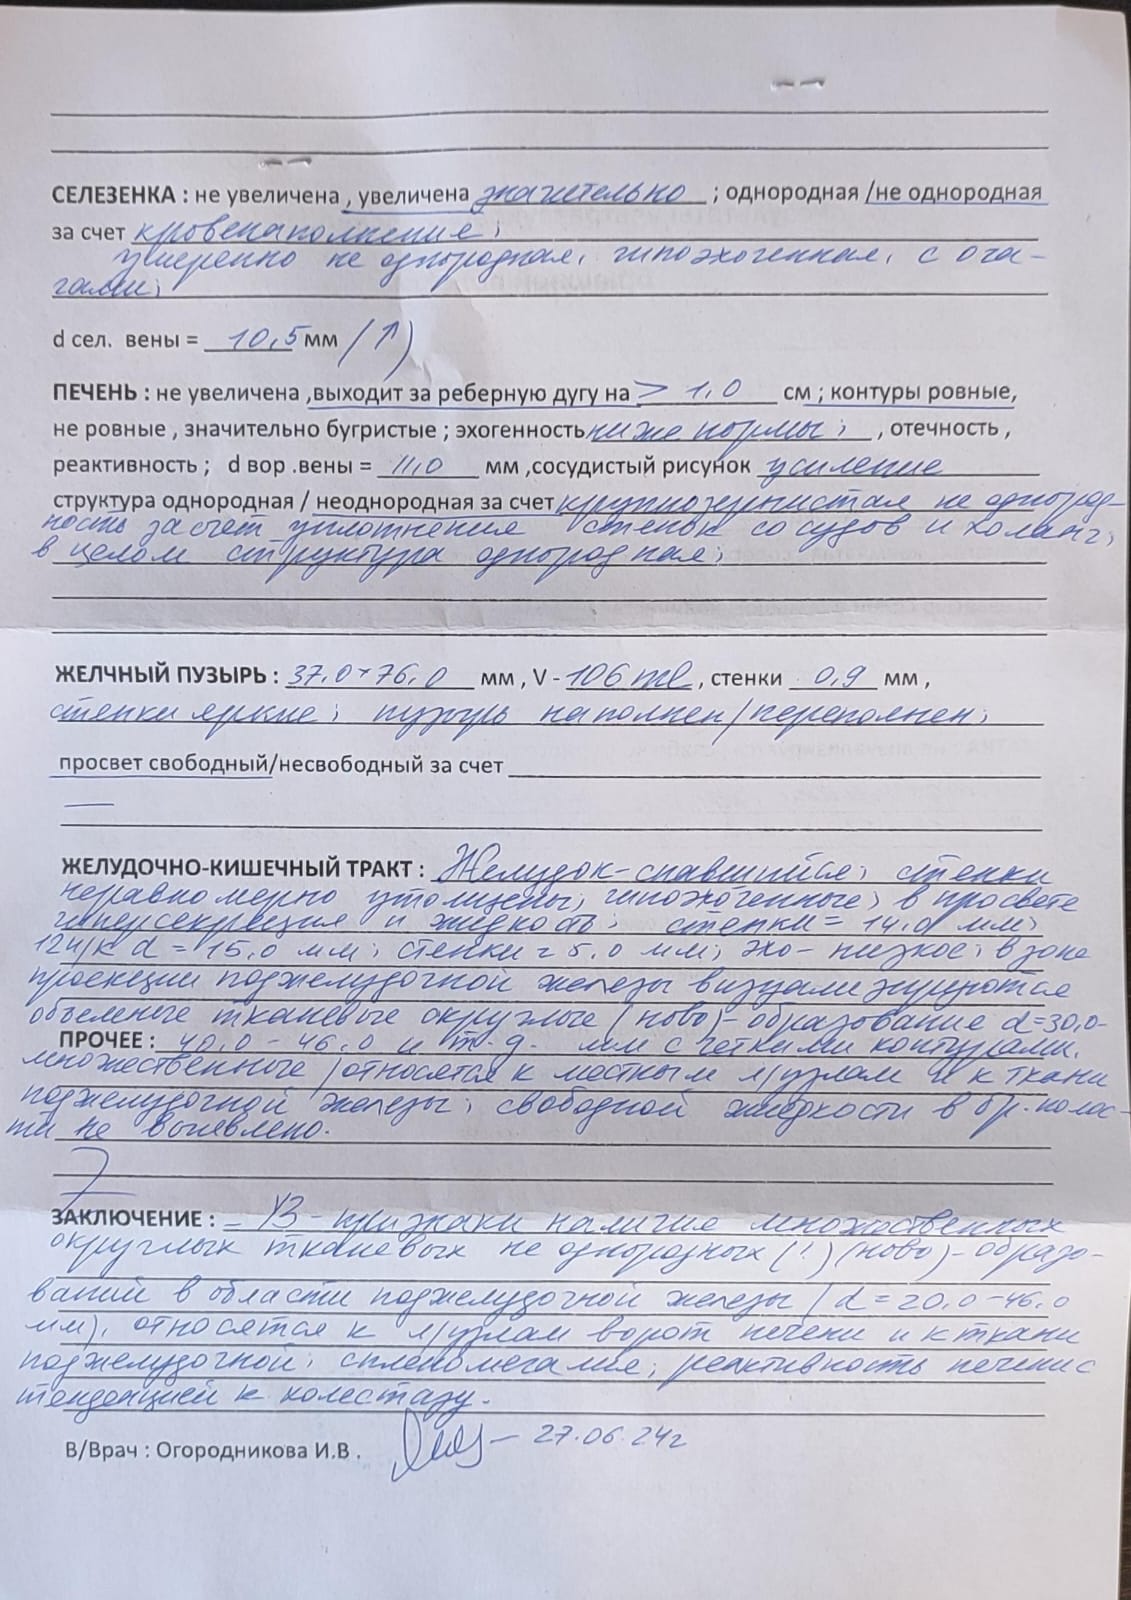 СЕЛЕЗЕНКА : не увеличена , увеличена значительно ; однородная /не однородная
за счет кровенаполнение;
умеренно не однородная, гипоэхогенная, с оча-
гами;
d сел. вены = 10,5 мм (↑)
ПЕЧЕНЬ : не увеличена ,выходит за реберную дугу на > 1,0 см ; контуры ровные,
не ровные , значительно бугристые ; эхогенность ниже нормы; , отечность ,
реактивность ; d вор .вены = 11,0 мм ,сосудистый рисунок усиление
структура однородная / неоднородная за счет крупнозернистая не однород-
ность за счет уплотнения стенок сосудов и холанг;
в целом структура однородная;
ЖЕЛЧНЫЙ ПУЗЫРЬ : 37,0 × 76,0 мм , V - 106 ml , стенки 0,9 мм ,
стенки яркие; пузырь наполнен/переполнен;
просвет свободный/несвободный за счет
—
ЖЕЛУДОЧНО-КИШЕЧНЫЙ ТРАКТ : Желудок-спавшийся; стенки
неравномерно утолщены; гипоэхогенные; в просвете
гиперсекреция и жидкость; стенки = 14,0 мм;
12 п/к d = 15,0 мм; стенки = 5,0 мм; эхо- низкое; в зоне
проекции поджелудочной железы визуализируются
объемные тканевые округлые (ново)-образование d=30,0-
ПРОЧЕЕ : 40,0 - 46,0 и т.д. мм с четкими контурами.
множественные /относятся к местным л/узлам и к ткани
поджелудочной железы; свободной жидкости в бр.полос-
ти не выявлено.
ЗАКЛЮЧЕНИЕ : - УЗ-признаки наличие множественных
округлых тканевых не однородных (!) (ново)-образо-
ваний в области поджелудочной железы (d=20,0-46,0
мм), относятся к л/узлам ворот печени и к ткани
поджелудочной; спленомегалия; реактивность печени с
тенденцией к холестазу.
В/Врач : Огородникова И.В . - 27.06.24г